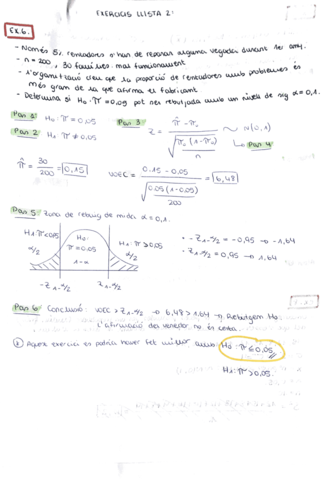 EXERCICIS LLISTA 2:
Ex.6.
- Només 5% rentadores s'han de reparar alguna vegada durant 1er any.
- n = 200, 30 famílies: mal funcionament
- L'organització creu que la proporció de rentadores amb problemes és
més gran de la que afirma el fabricant
- Determina si H0: π = 0,05 pot ser rebutjada amb un nivell de sig α = 0,1.
Pas 1: H0: π = 0,05
Pas 2: H1: π ≠ 0,05
Pas 3: Z = (π̂ - π0) / √(π0 (1-π0) / n) ~ N(0,1)
Pas 4:
π̂ = 30/200 = 0,15
VOEC = (0.15 - 0.05) / √(0.05 (1-0.05) / 200) = 6,48
Pas 5: Zona de rebuig de mida α = 0,1.
H1: π<0,05
α/2
H0: π = 0,05
1-α
H1: π>0,05
α/2
-Z1-α/2
Z1-α/2
· -Z1-α/2 = -0,95 → -1,64
· Z1-α/2 = 0,95 → 1,64
Pas 6: Conclusió: VOEC > Z1-α/2 → 6,48 > 1,64 → Rebutgem H0.
L'afirmació del venedor no és certa.
Aquest exercici es podria haver fet millor amb H0: π ≤ 0,05
H1: π > 0,05.